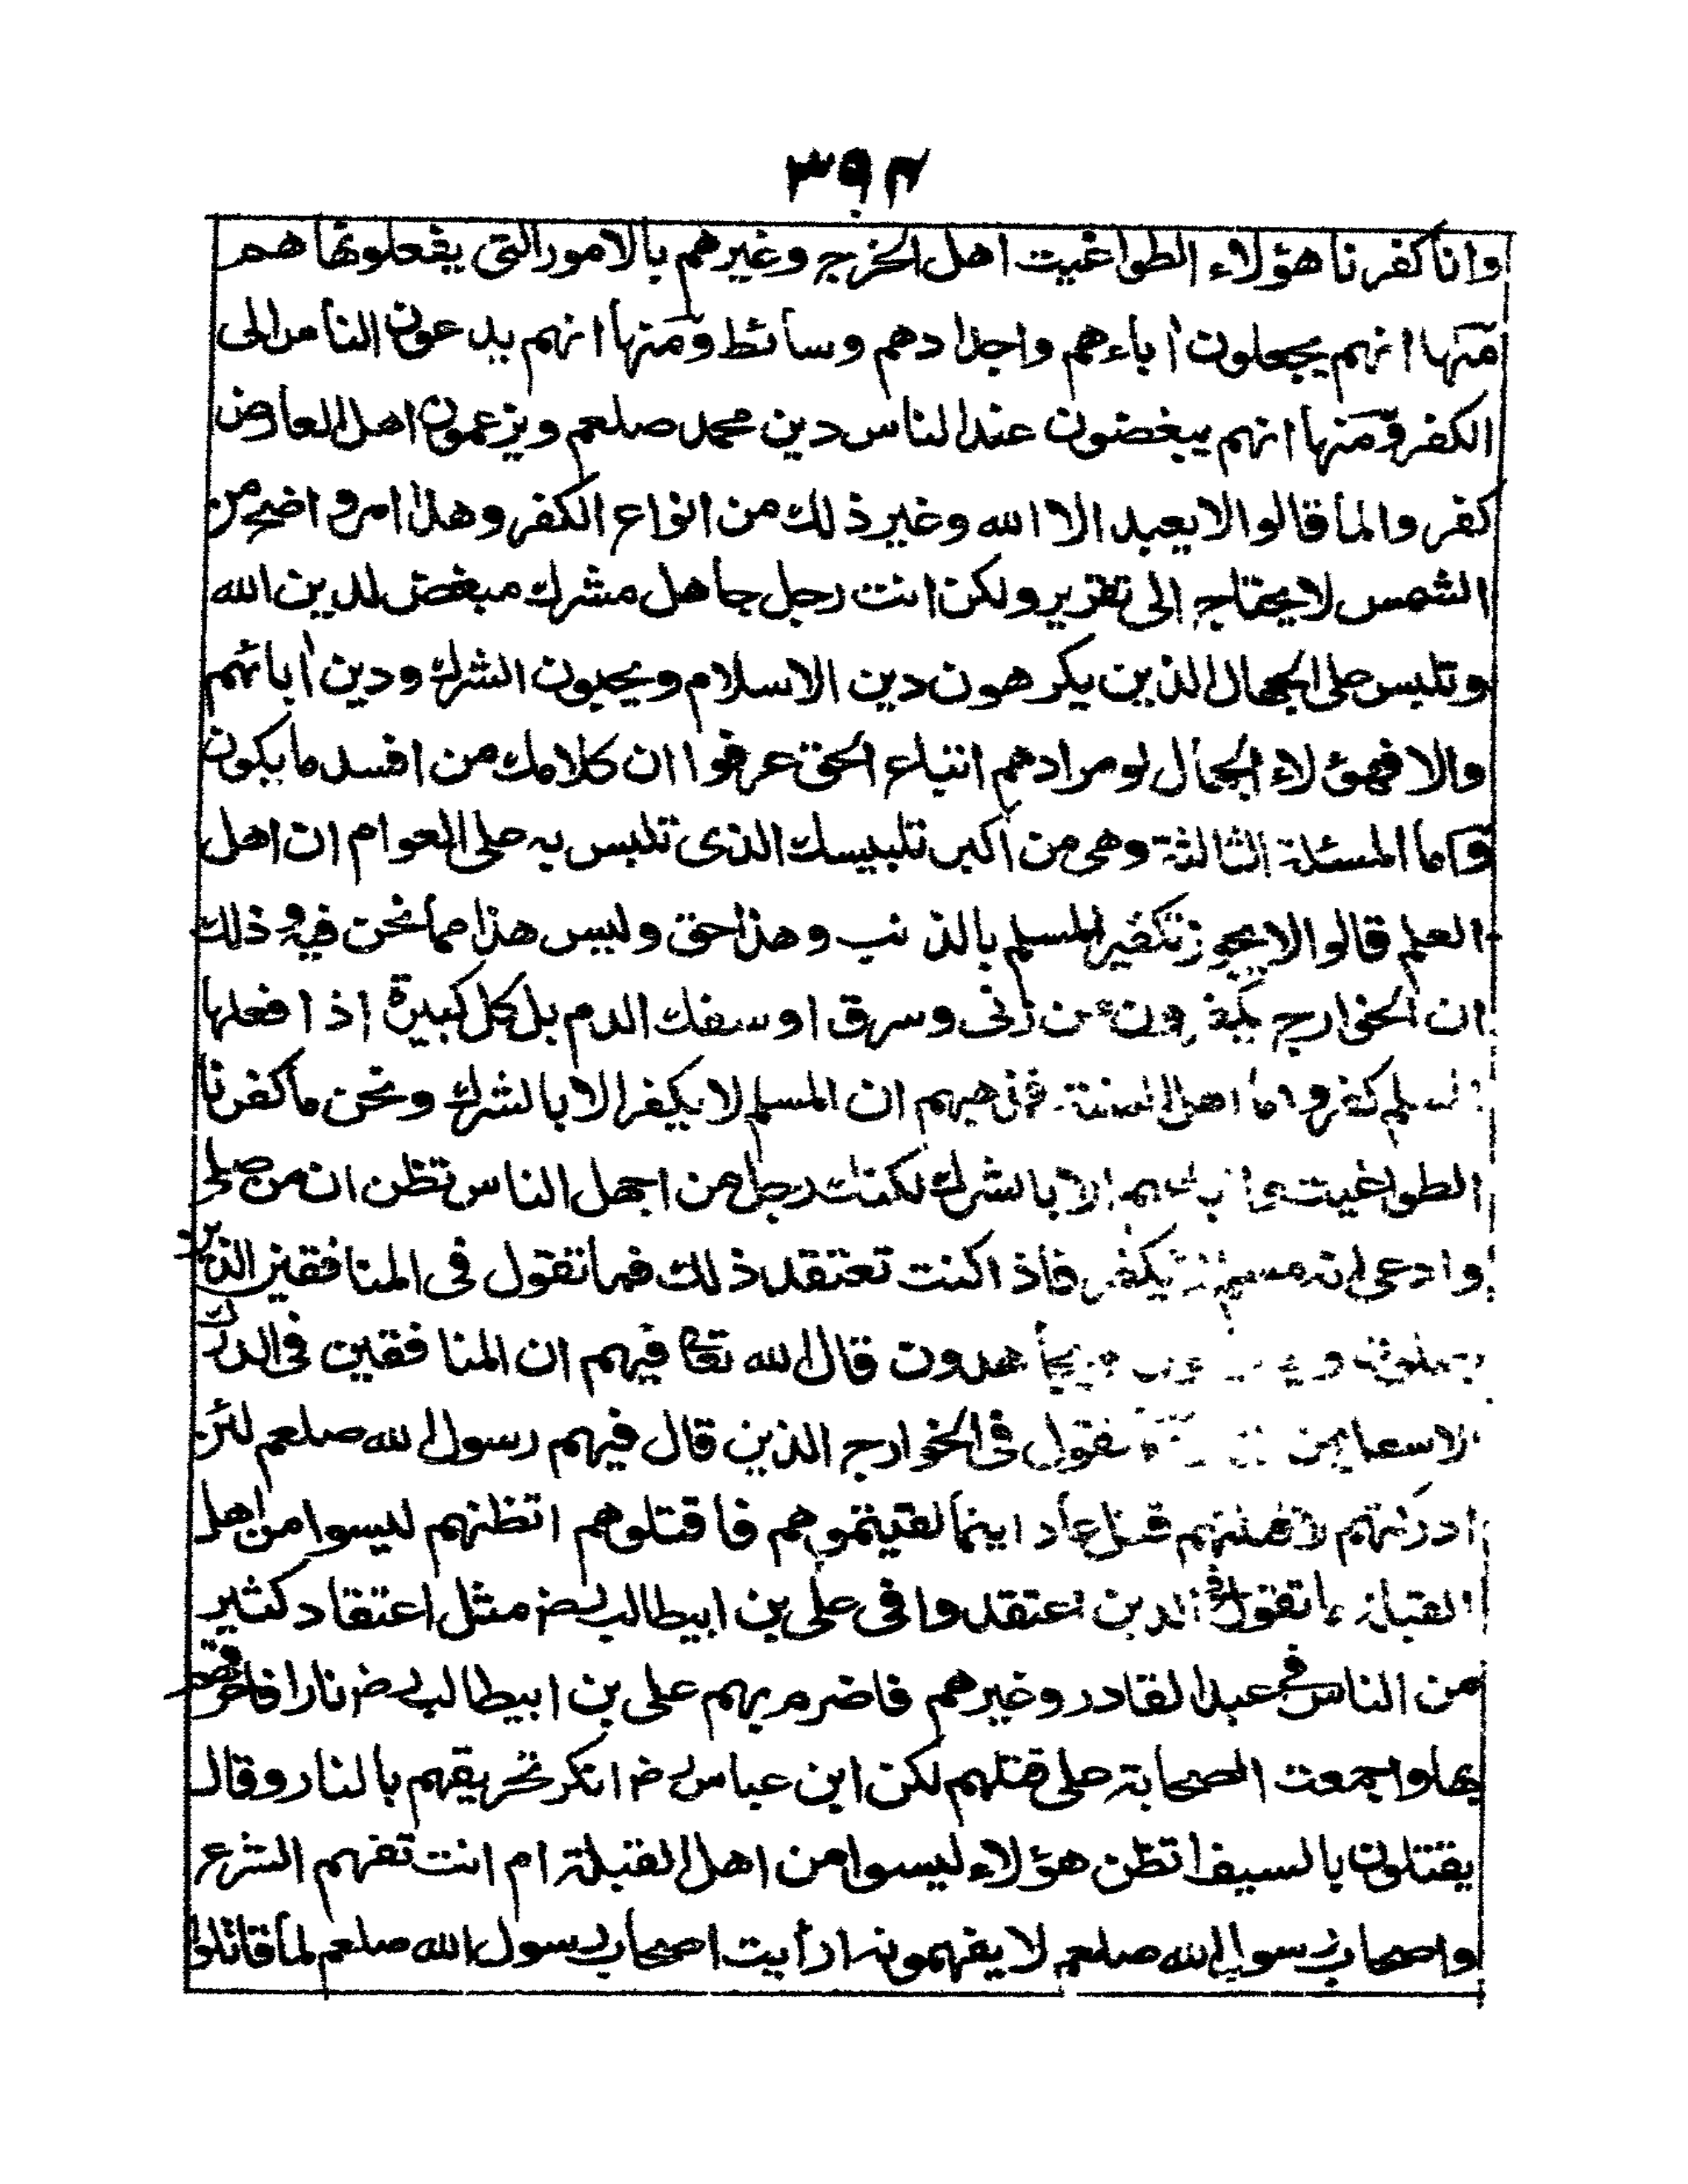 ٣٩٤
وانا كفرنا هؤلاء الطواغيت اهل الخرج وغيرهم بالامور التى يفعلونها هم
منها انهم يجعلون أباءهم واجدادهم وسائط ومنها انهم يدعون الناس الى
الكفر ومنها انهم يبغضون عند الناس دين محمد صلعم ويزعمون اهل العارض
كفروا لما قالوا لا يعبد الا الله وغير ذلك من انواع الكفر وهذا امر واضح من
الشمس لا يحتاج الى تقرير ولكن انت رجل جاهل مشرك مبغض لدين الله
وتلبس على الجهال الذين يكرهون دين الاسلام ويحبون الشرك ودين أبائهم
والا فهؤلاء الجهال لو مرادهم اتباع الحق عرفوا ان كلامك من افسد ما يكون
واما المسئلة الثالثة وهى من اكبر تلبيسك الذى تلبس به على العوام ان اهل
العلم قالوا لا يجوز تكفير المسلم بالذنب وهذا حق وليس هذا مما نحن فيه وذلك
ان الخوارج يكفرون من زنى وسرق او سفك الدم بل كل كبيرة اذا فعلها
المسلم كفر واما اهل السنة فمذهبهم ان المسلم لا يكفر الا بالشرك ونحن ما كفرنا
الطواغيت الا بالشرك لكنك رجل من اجهل الناس تظن ان من صلى
وادعى انه مسلم يكفر فاذا كنت تعتقد ذلك فما تقول فى المنافقين الذين
يجاهدون قال الله تعا فيهم ان المنافقين فى الدرك
الاسفل من تقول فى الخوارج الذين قال فيهم رسول الله صلعم لئن
ادركتهم لاقتلنهم قتل عاد اينما لقيتموهم فاقتلوهم اتظنهم ليسوا من اهل
القبلة ما تقول فى الذين اعتقدوا فى على بن ابيطالب رض مثل اعتقاد كثير
من الناس فى عبد القادر وغيرهم فاضرم بهم على بن ابيطالب رض نارا فاحرقهم
بها واجمعت الصحابة على قتلهم لكن ابن عباس رض انكر تحريقهم بالنار وقال
يقتلون بالسيف اتظن هؤلاء ليسوا من اهل القبلة ام انت تفهم الشرع
واصحاب رسول الله صلعم لا يفهمونه ارأيت اصحاب رسول الله صلعم لما قاتلوا